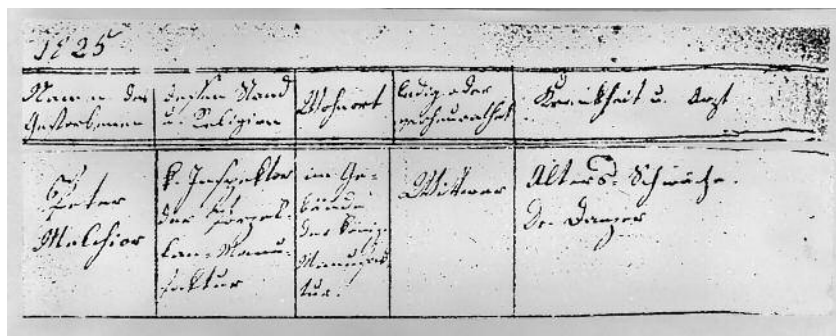 1825
Namen des
Gestorbenen
dessen Stand
u. Religion
Wohnort
ledig oder
verheurathet
Krankheit u. Arzt
Peter
Melchior
k. Inspektor
der Porzel-
lan-Manu-
faktur
im Ge-
bäude
der König.
tur.
Wittwer
Alters-Schwäche.
Dr. Danzer